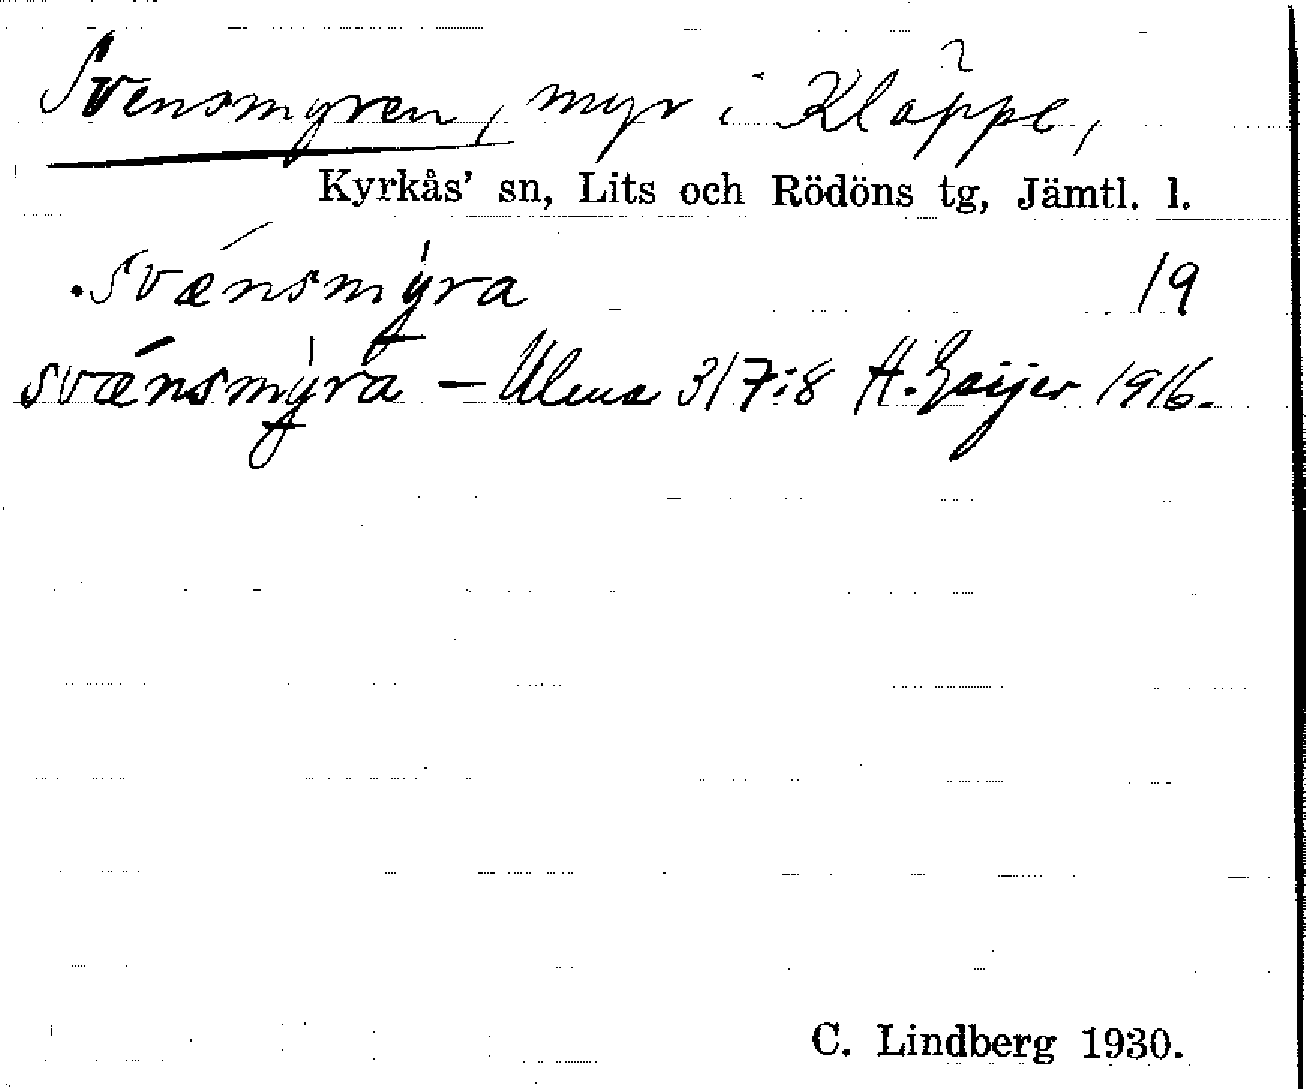 Svensmyren, myr i Kläppe,
Kyrkås' sn, Lits och Rödöns tg, Jämtl. l.
.svænsmyra 19
svænsmyra – Ulma 317:8 H. Geijer 1916.
C. Lindberg 1930.